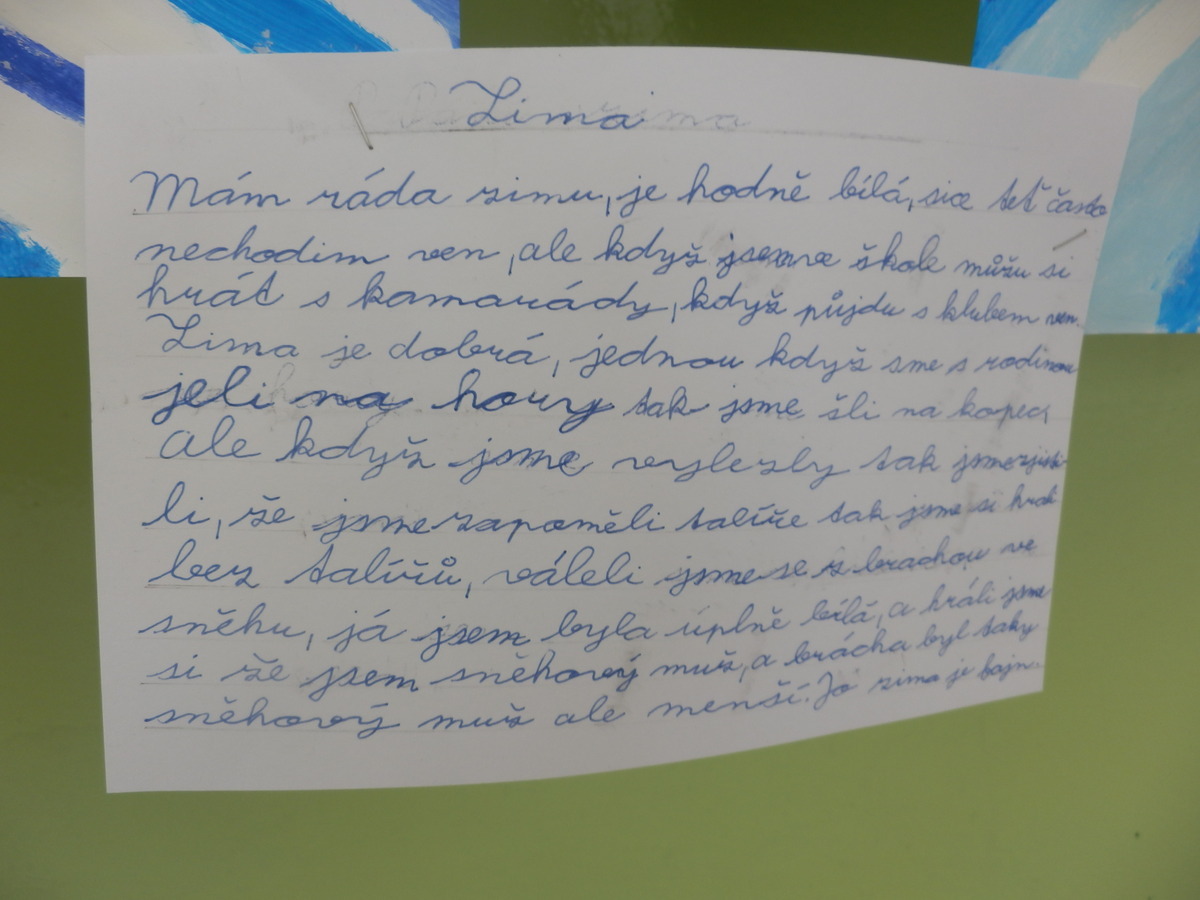 Zima
Mám ráda zimu, je hodně bílá, sice teť často
nechodim ven, ale když jsem ve škole můžu si
hrát s kamarády, když půjdu s klubem ven.
Zima je dobrá, jednou když sme s rodinou
jeli na hory tak jsme šli na kopec,
ale když jsme vylezly tak jsme zjisti-
li, že jsme zapoměli talíře tak jsme si hráli
bez talířů, váleli jsme se s brachou ve
sněhu, já jsem byla úplně bílá, a hráli jsme
si že jsem sněhový muž, a brácha byl taky
sněhový muž ale menší. Jo zima je